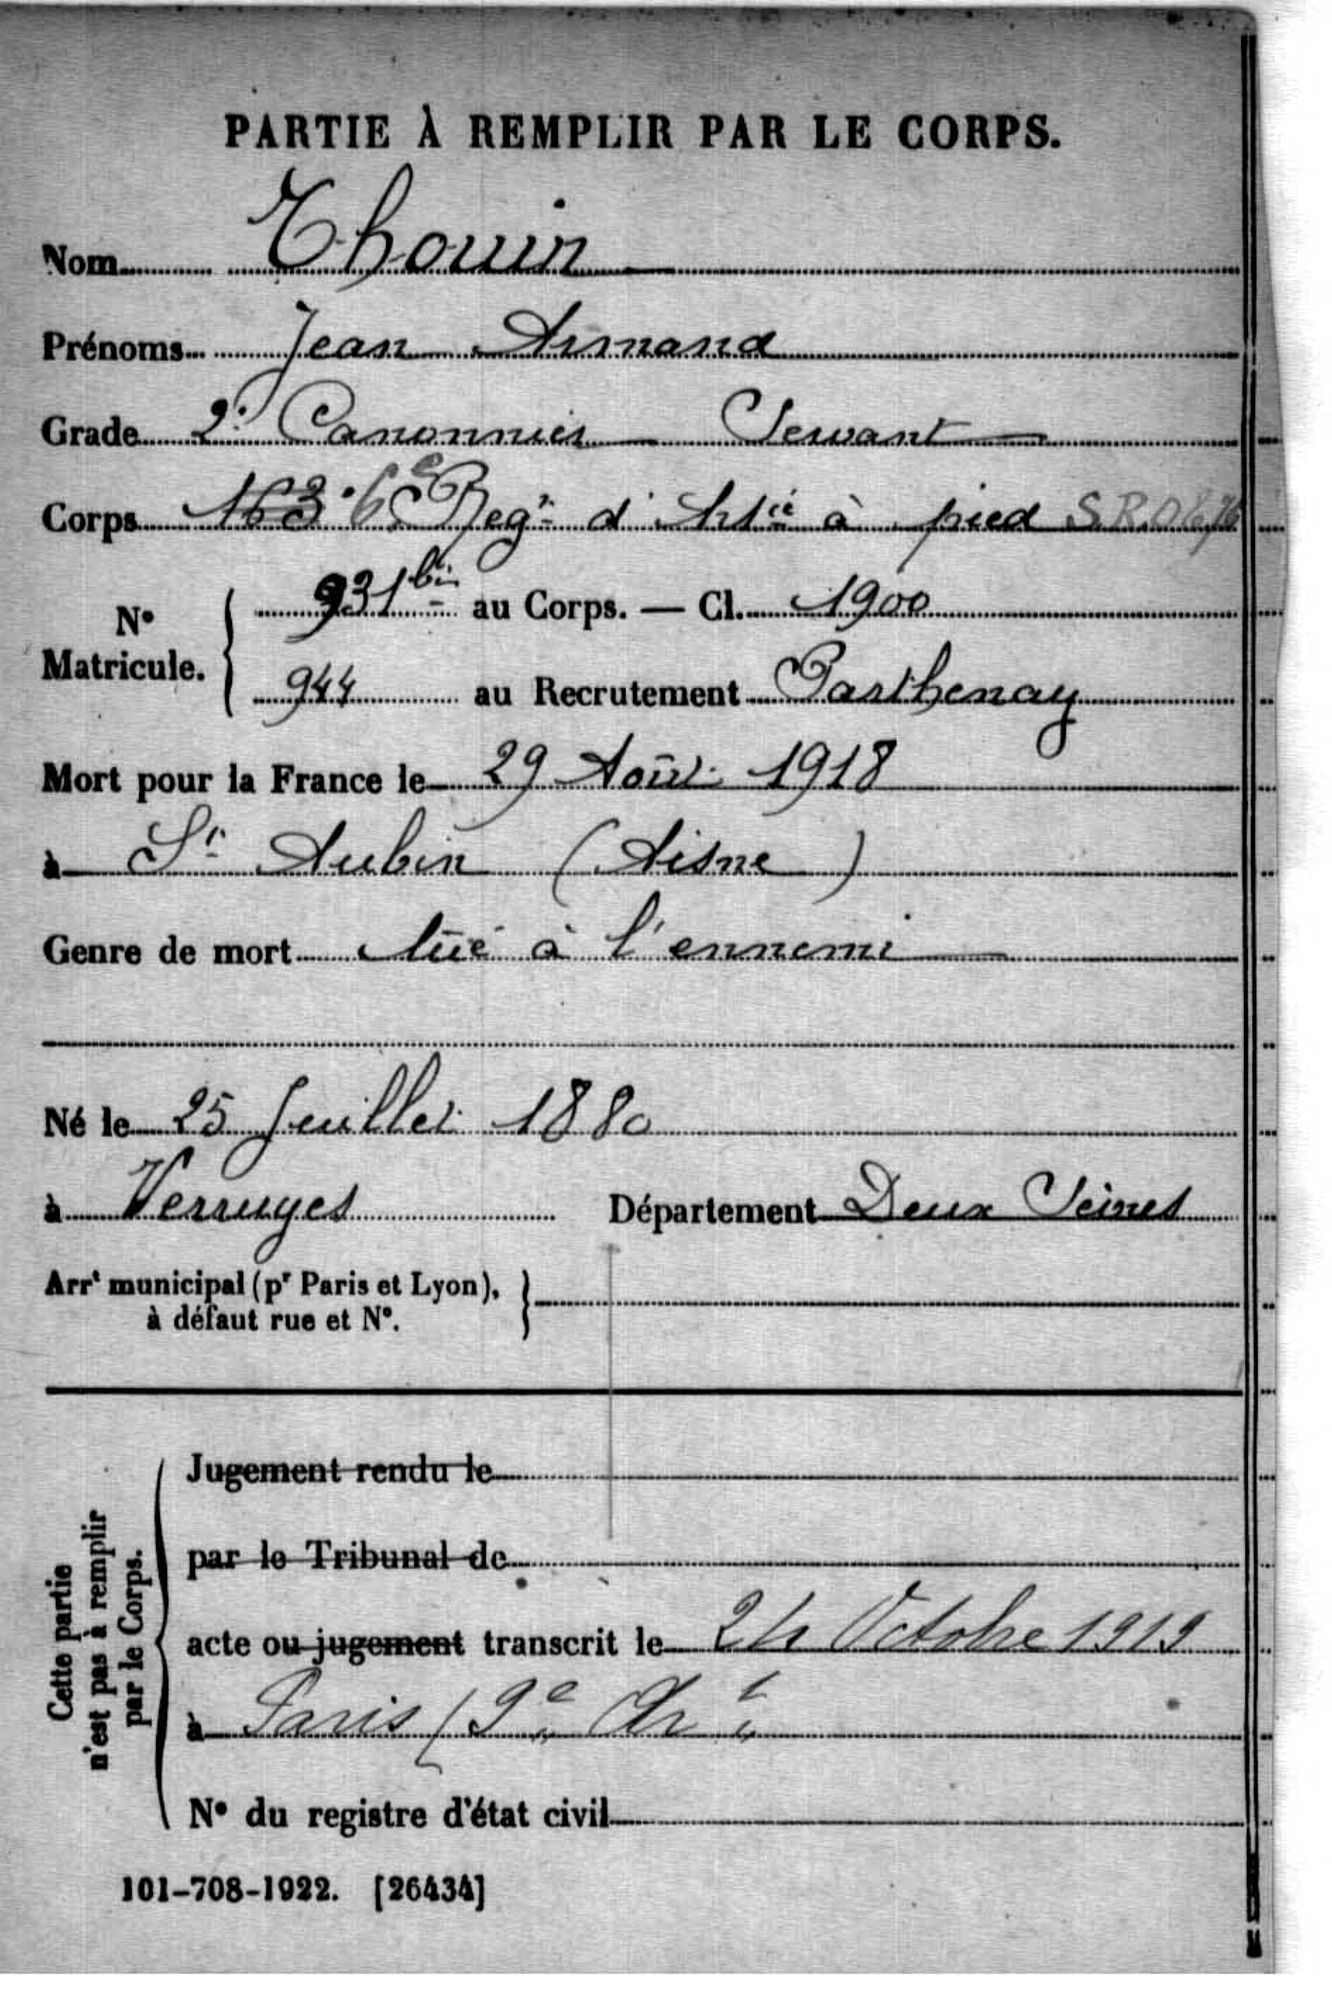 PARTIE À REMPLIR PAR LE CORPS.
Nom Thouin
Prénoms Jean Armand
Grade 2e Canonnier Servant
Corps 163 6e Regt d'Artie à pied S.R.O
No Matricule. 931 bis au Corps. — Cl. 1900
944 au Recrutement Parthenay
Mort pour la France le 29 Août 1918
à St Aubin (Aisne)
Genre de mort tué à l'ennemi
Né le 25 Juillet 1880
à Verruyes Département Deux Sèvres
Arrt municipal (pr Paris et Lyon),
à défaut rue et No.
Cette partie
n'est pas à remplir
par le Corps.
Jugement rendu le
par le Tribunal de
acte ou jugement transcrit le 24 Octobre 1919
à Paris (9e Art
No du registre d'état civil
101-708-1922. [26434]